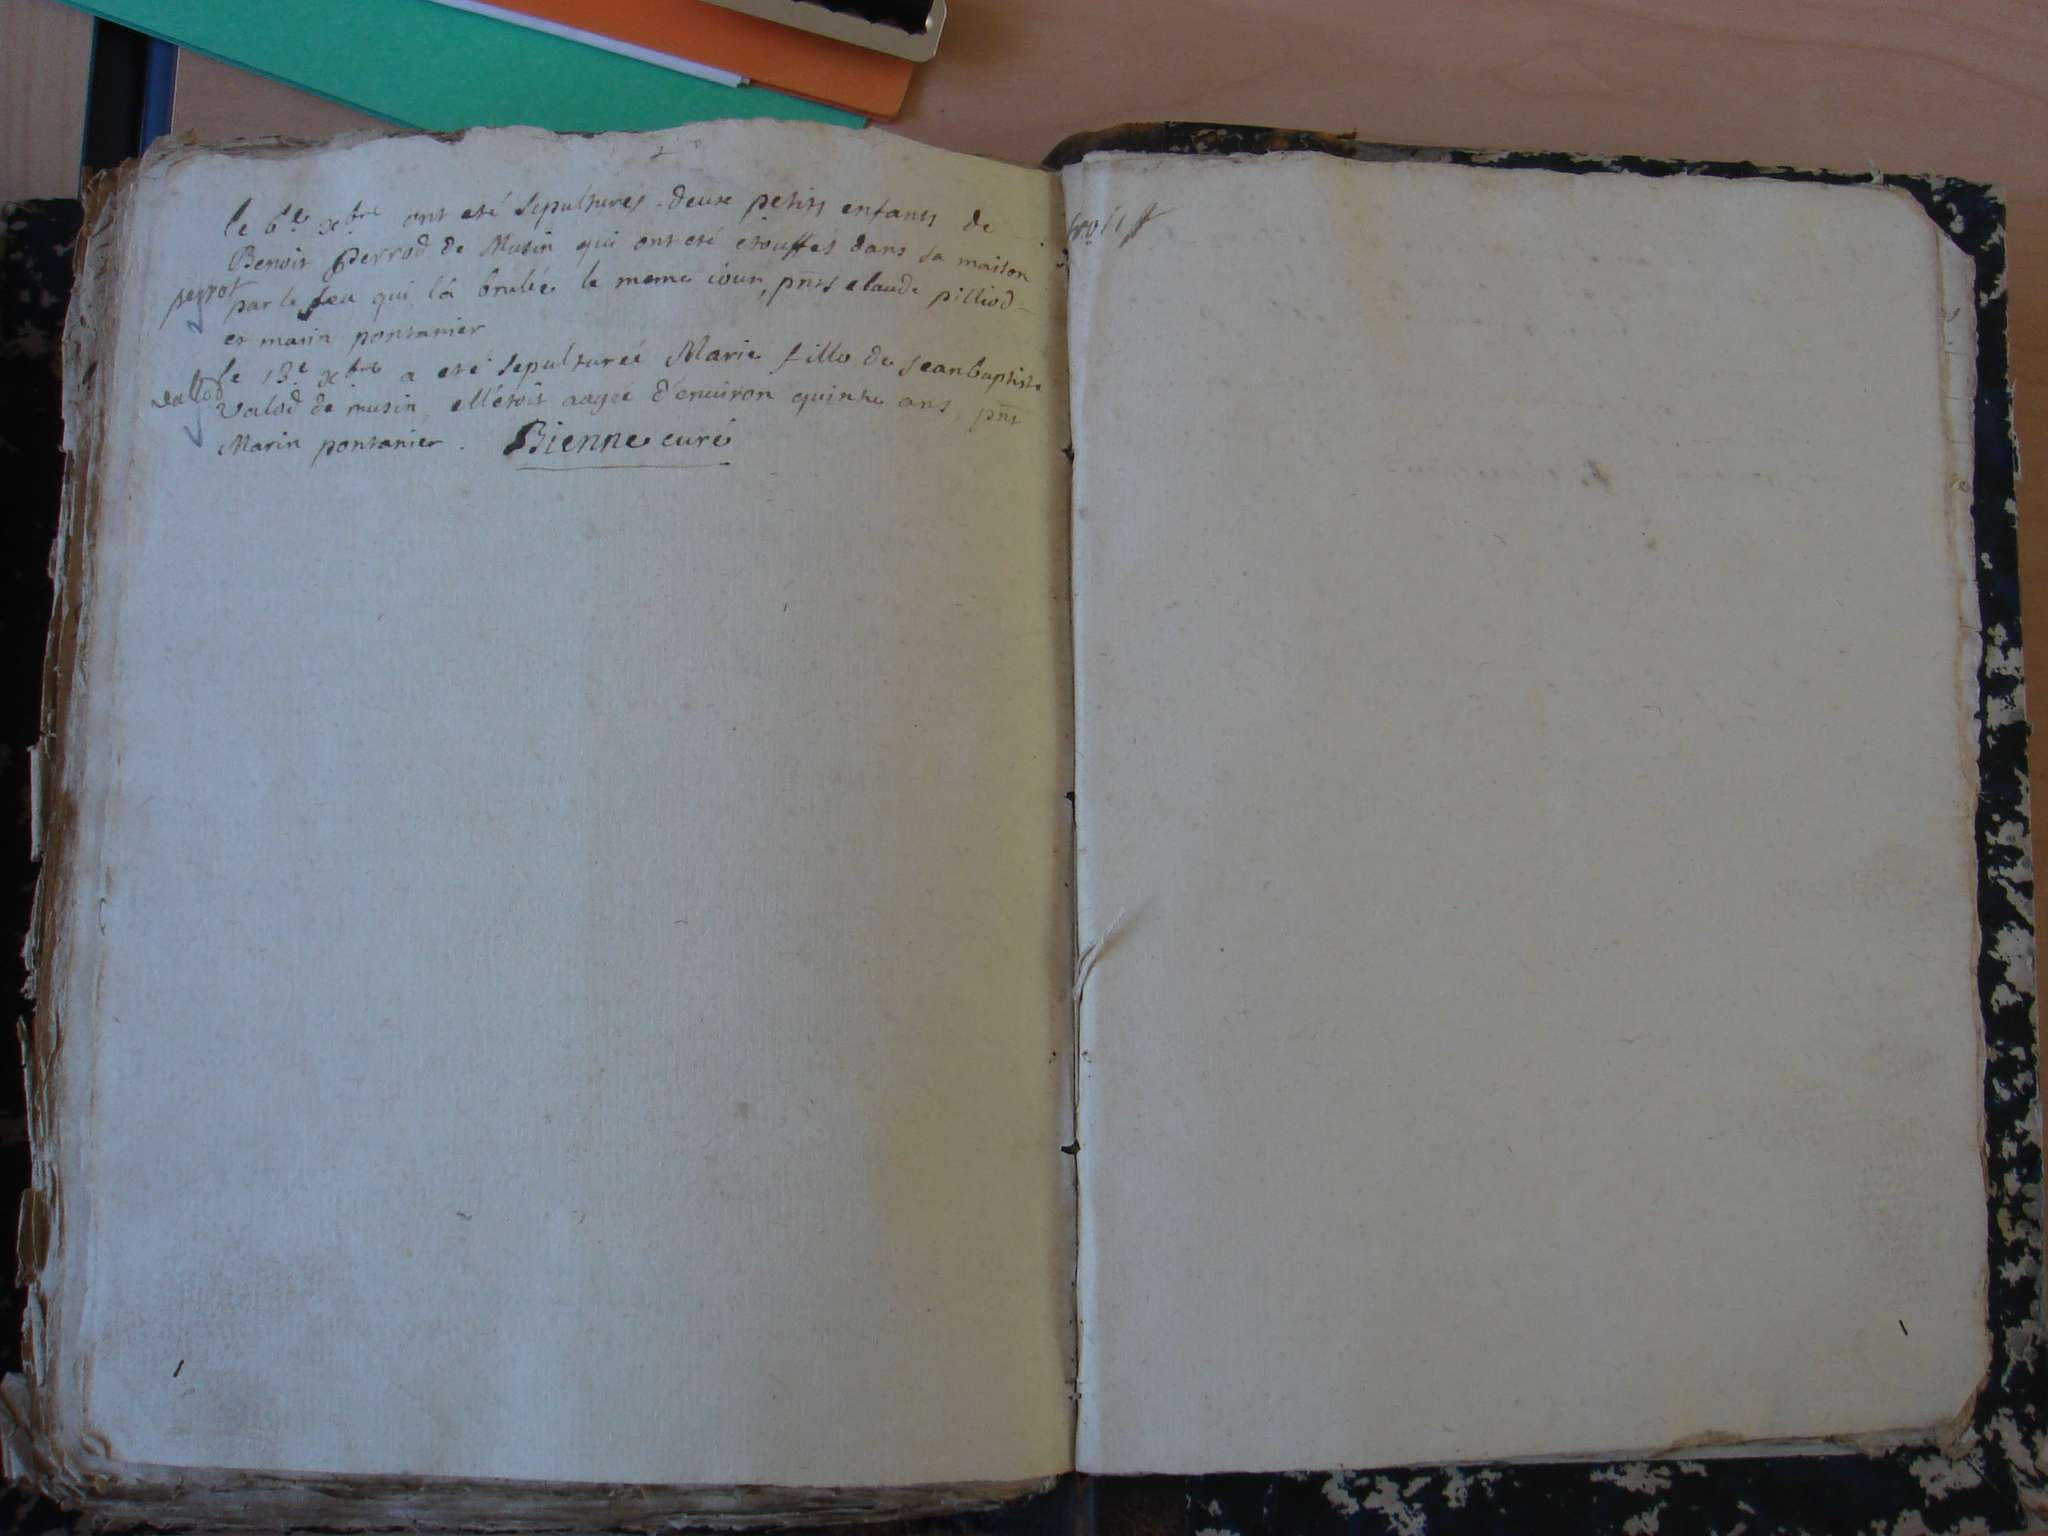 le 6.e xbre ont eté sepulturés deux petits enfants de
Benoit Perrod de Musin qui ont eté etouffés dans sa maison
perrot
par le feu qui la brulée le meme iour, pnts claude pilliod
et marin pontanier
le 13.e xbre a eté sepulturée Marie fille de Jean baptiste
vallod
Valod de musin, ell'etoit aagée d'environ quinze ans, pnt
Marin pontanier. Bienne curé